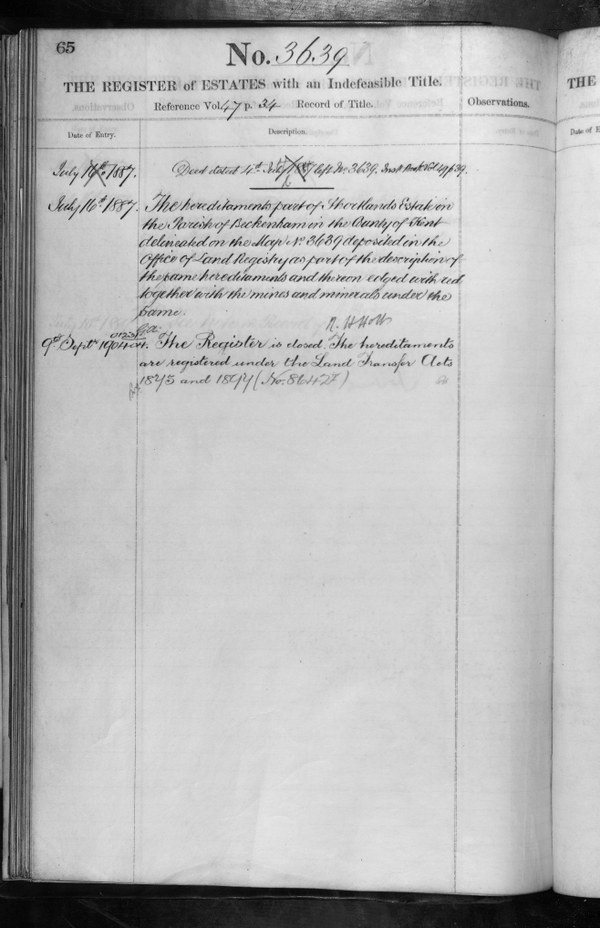 65
No. 3639
THE REGISTER of ESTATES with an Indefeasible Title.
Reference Vol. 47 p. 34 Record of Title.
Observations.
Date of Entry.
Description.
July 1887.
Deed dated 4th July 1887 left No 3639.
July 16th 1887.
The hereditaments part of Shortlands Estate in
the Parish of Beckenham in the County of Kent
delineated on the Map No 3639 deposited in the
Office of Land Registry as part of the description of
the same hereditaments and thereon edged with red
together with the mines and minerals under the
same.
R. H. Holt
9th Septr 1904.
The Register is closed. The hereditaments
are registered under the Land Transfer Acts
1875 and 1897 (No. 86427)
THE
Date of E